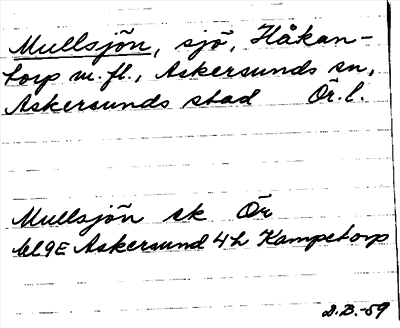 Mullsjön, sjö, Håkan-
torp m.fl., Askersunds sn,
Askersunds stad Ör. l.
Mullsjön sk Ör
bl 9E Askersund 4h Kampetorp
D.B.-59